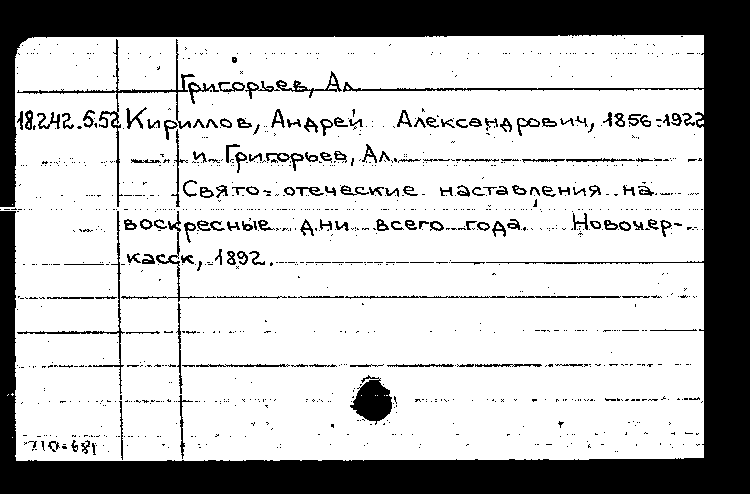 Григорьев, Ал.
18.242.5.52 Кириллов, Андрей Александрович, 1856-1922
и Григорьев, Ал.
Свято-отеческие наставления на
воскресные дни всего года. Новочер-
касск, 1892.
710-681